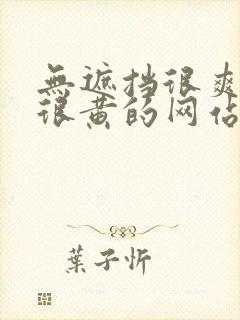 無遮挡很爽
很黄的网佔
葉子忻